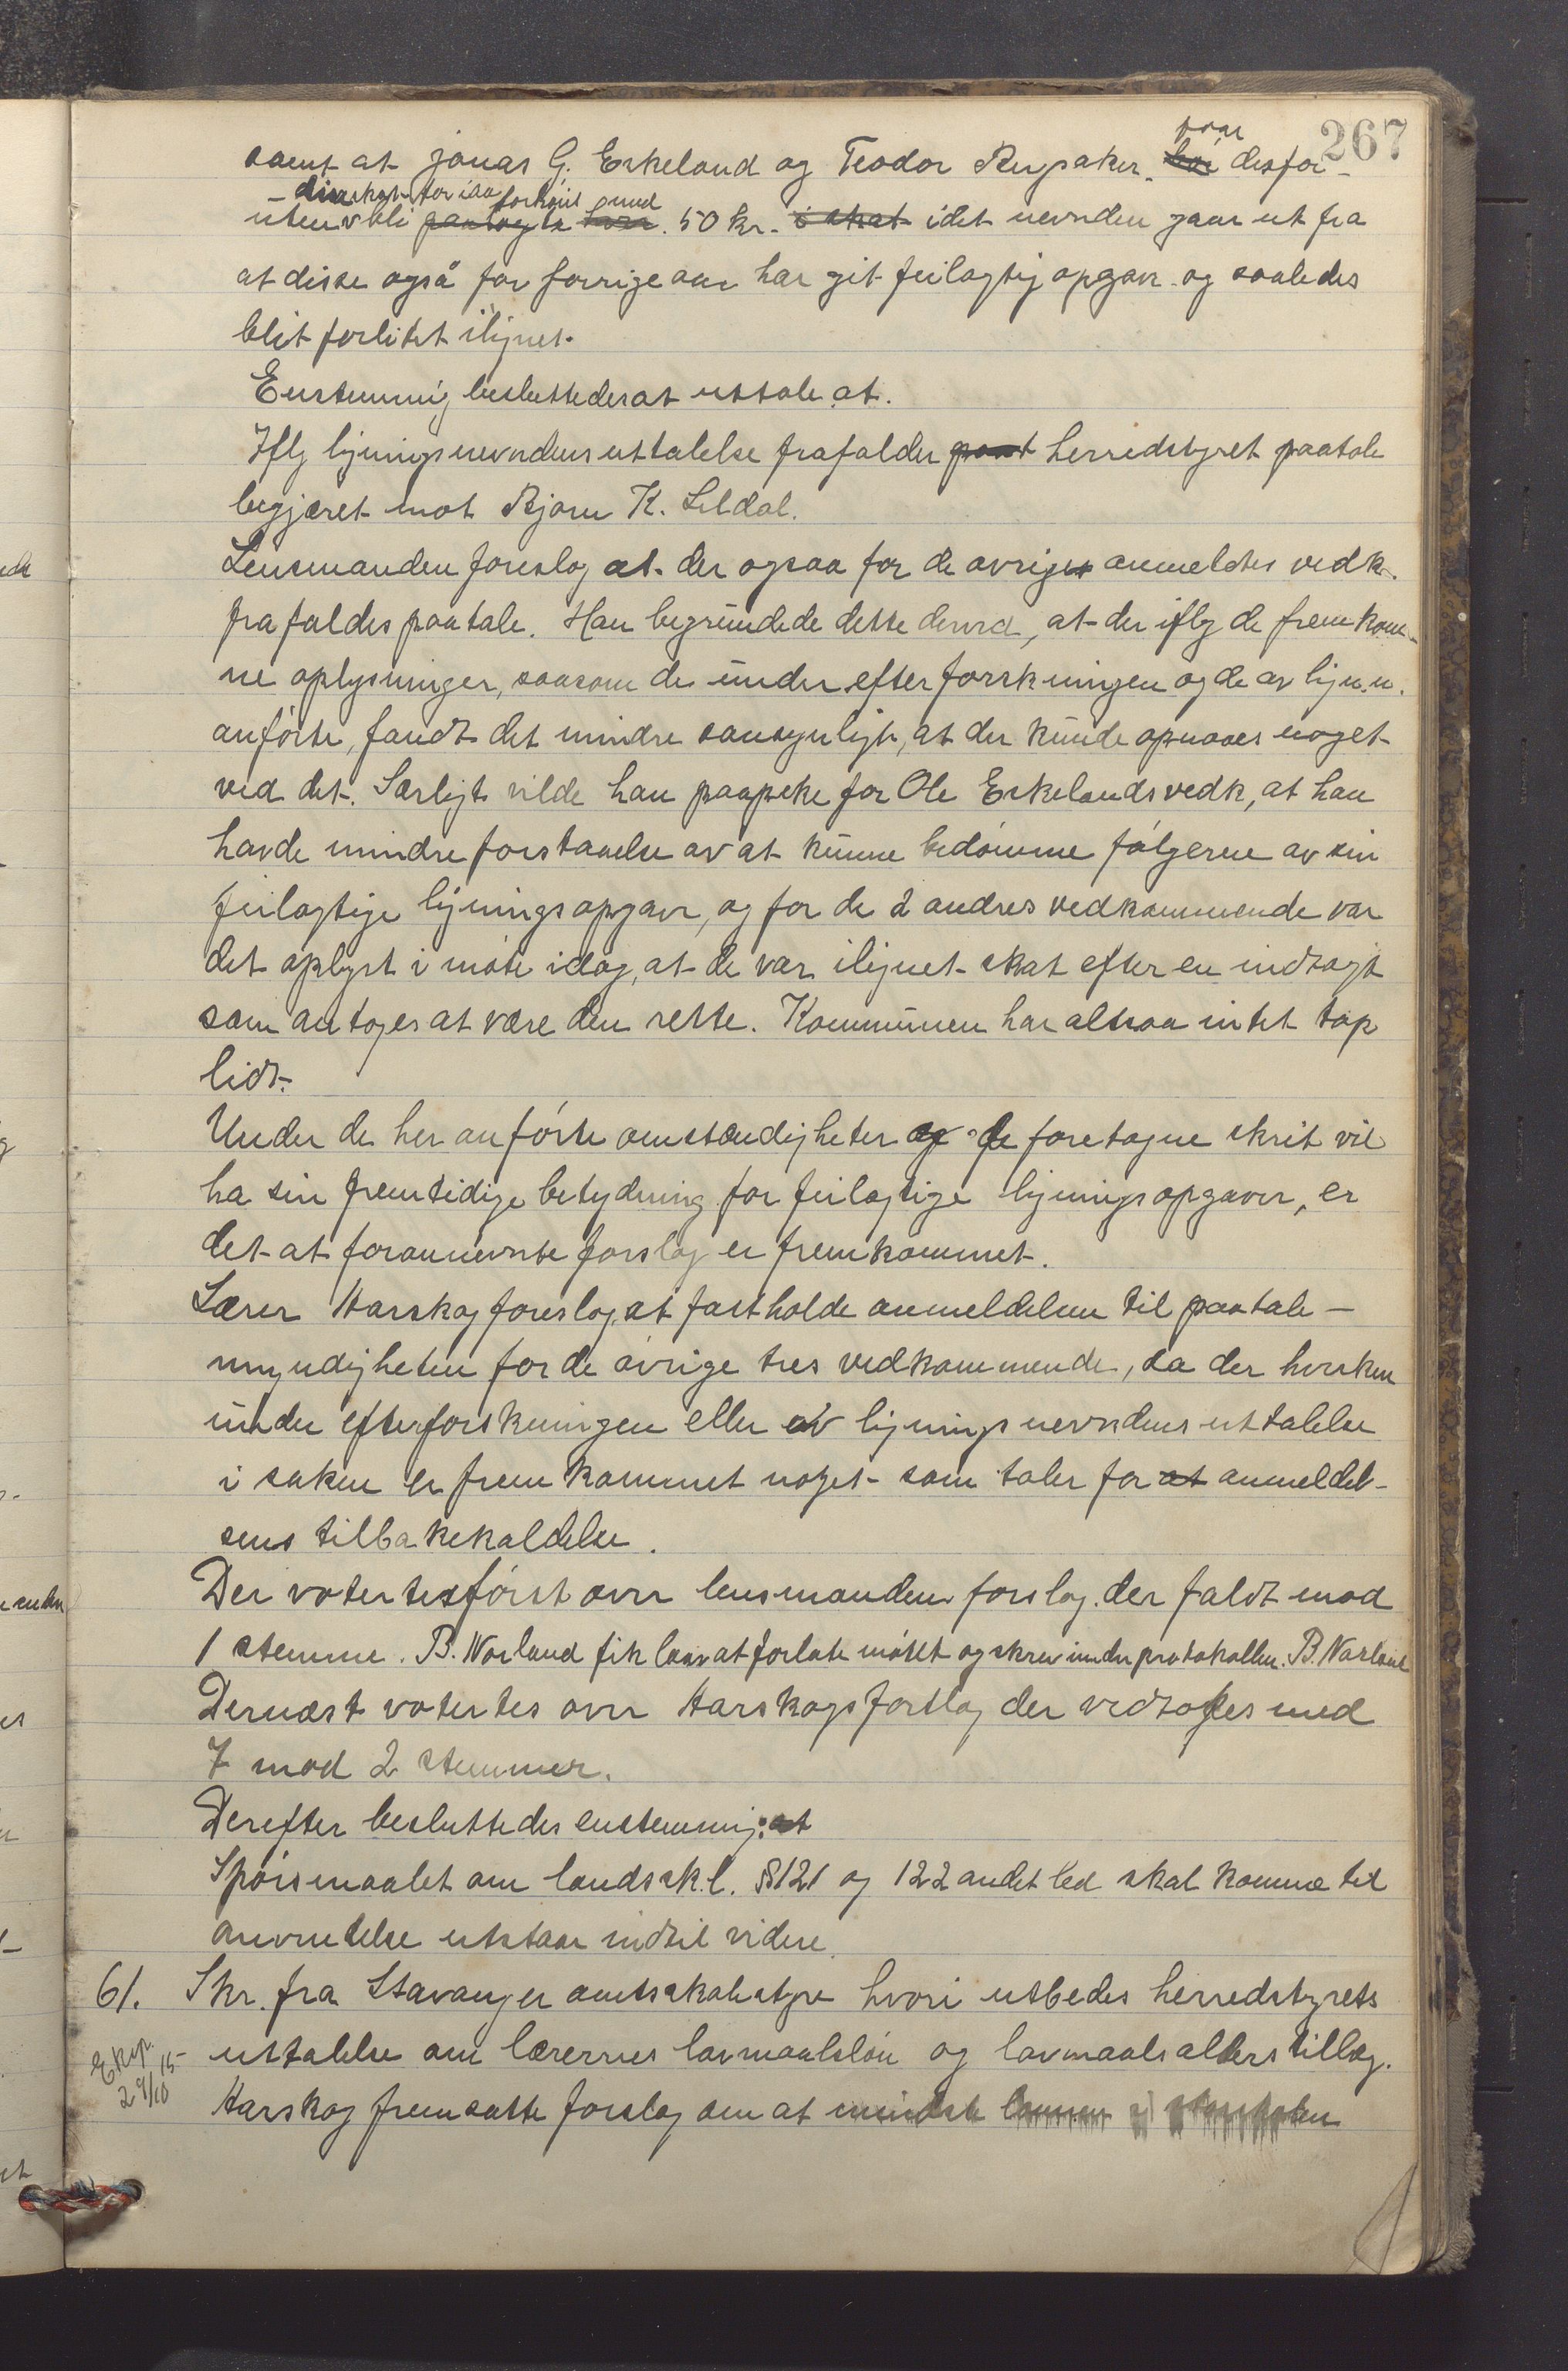 267
samt at Jonas G. Eikeland og Teodor Rupsaker. faar bör desfor-
uten deres skat for isaar forhöiet med bli paalagte hver. 50 kr. i skat idet nevnden gaar ut fra
at disse også for forrige aar har git feilagtig opgave og saaledes
blit forlitet ilignet.
Enstemmig besluttedes at uttale at.
Iflg ligningsnevndens uttalelse frafalder herredstyret paatale
begjæret mot Bjarne K. Lildal.
Lensmanden foreslog at der ogsaa for de øvriges anmeldtes vedk.
frafaldes paatale. Han begrundede dette derved, at der iflg de fremkom-
ne oplysninger, saasom de under efterforskningen og de av lign.n.
anförte, fandt det mindre sansynligt, at der kunde opnaaes noget
ved det. Særligt vilde han paapeke for Ole Eikelands vedk, at han
havde mindre forstaaelse av at kunne bedömme fölgerne av sin
feilagtige ligningsopgave, og for de 2 andres vedkommende var
det oplyst i möte idag, at de var ilignet skat efter en indtægt
som antoges at være den rette. Kommunen har altsaa intet tap
lidt.
Under de her anförte omstændigheter og de foretagne skrit vil
ha sin fremtidige betydning for feilagtige ligningsopgaver, er
det at forannevnte forslag er fremkommet.
Lærer Harskog foreslog, at fastholde anmeldelsen til paatale-
myndigheten for de övrige tres vedkommende, da der hverken
under efterforskningen eller av ligningsnevndens uttalelse
i saken er fremkommet noget som taler for at anmeldel-
sens tilbakekaldelse.
Der votertes först over lensmandens forslag. der faldt mod
1 stemme. B. Norland fik lov at forlate mötet og skrev under protokollen. B. Norland
Dernæst votertes over Harskogs forslag der vedtoges med
7 mod 2 stemmer.
Derefter besluttedes enstemmig: at
Spörsmaalet om landsk.l. §121 og 122 andet led skal komme til
anvendelse utstaar indtil videre.
61. Skr. fra Stavanger amtsskolestyre hvori utbedes herredstyrets
uttalelse om lærernes lavmaalslön og lavmaals alderstillæg.
Eksp. 29/10 15-
Harskog fremsatte forslag om at mindste lönnen